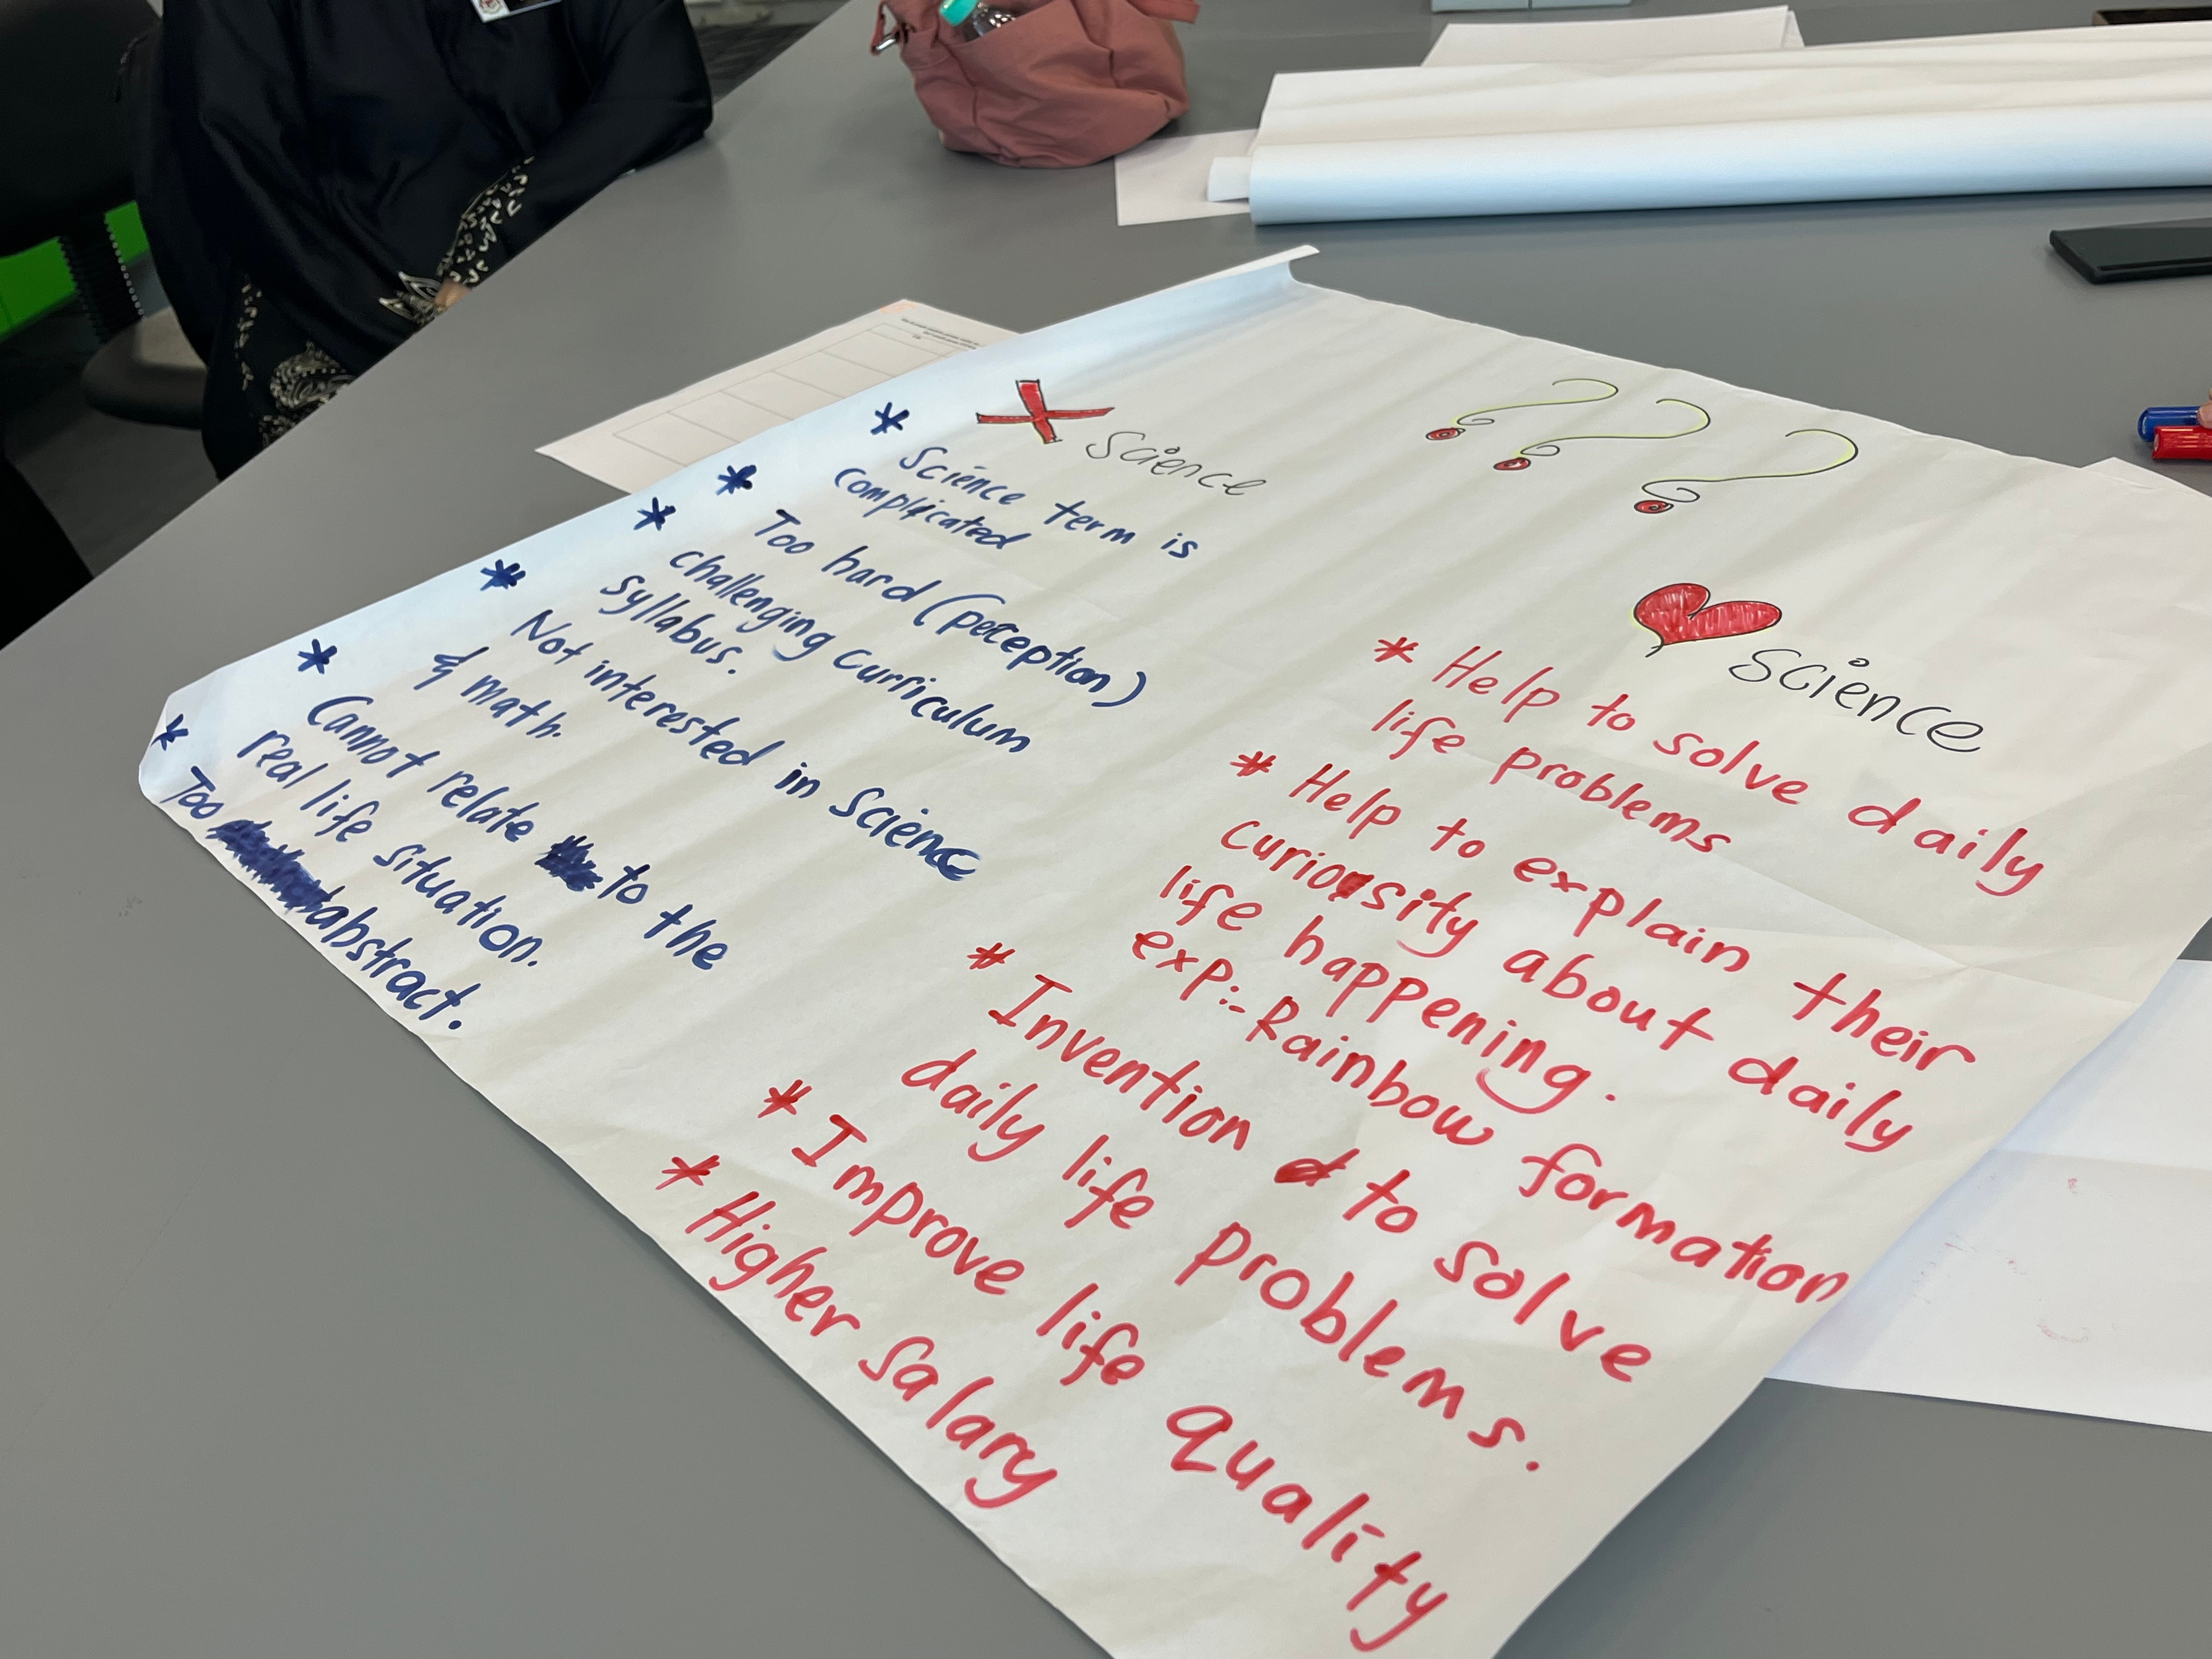 Science
* Science term is
complicated
* Too hard (perception)
* challenging curriculum
syllabus.
* Not interested in Science
& math.
* Cannot relate to the
real life situation.
* Too abstract.
???
Science
* Help to solve daily
life problems
* Help to explain their
curiousity about daily
life happening.
exp:- Rainbow formation
* Invention to solve
daily life problems.
* Improve life quality
* Higher salary